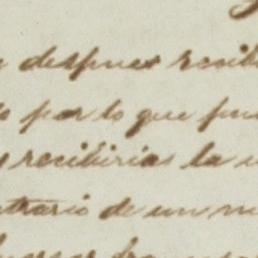 despues recibi
por lo que pue
recibirias la
ntrario de un m